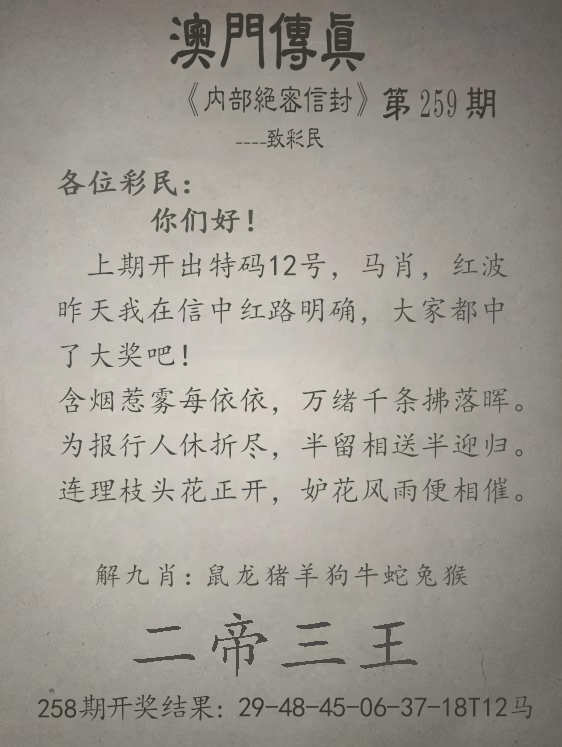 澳門傳真
《内部絕密信封》第259期
----致彩民
各位彩民：
你们好！
上期开出特码12号，马肖，红波
昨天我在信中红路明确，大家都中
了大奖吧！
含烟惹雾每依依，万绪千条拂落晖。
为报行人休折尽，半留相送半迎归。
连理枝头花正开，妒花风雨便相催。
解九肖：鼠龙猪羊狗牛蛇兔猴
二帝三王
258期开奖结果：29-48-45-06-37-18T12马